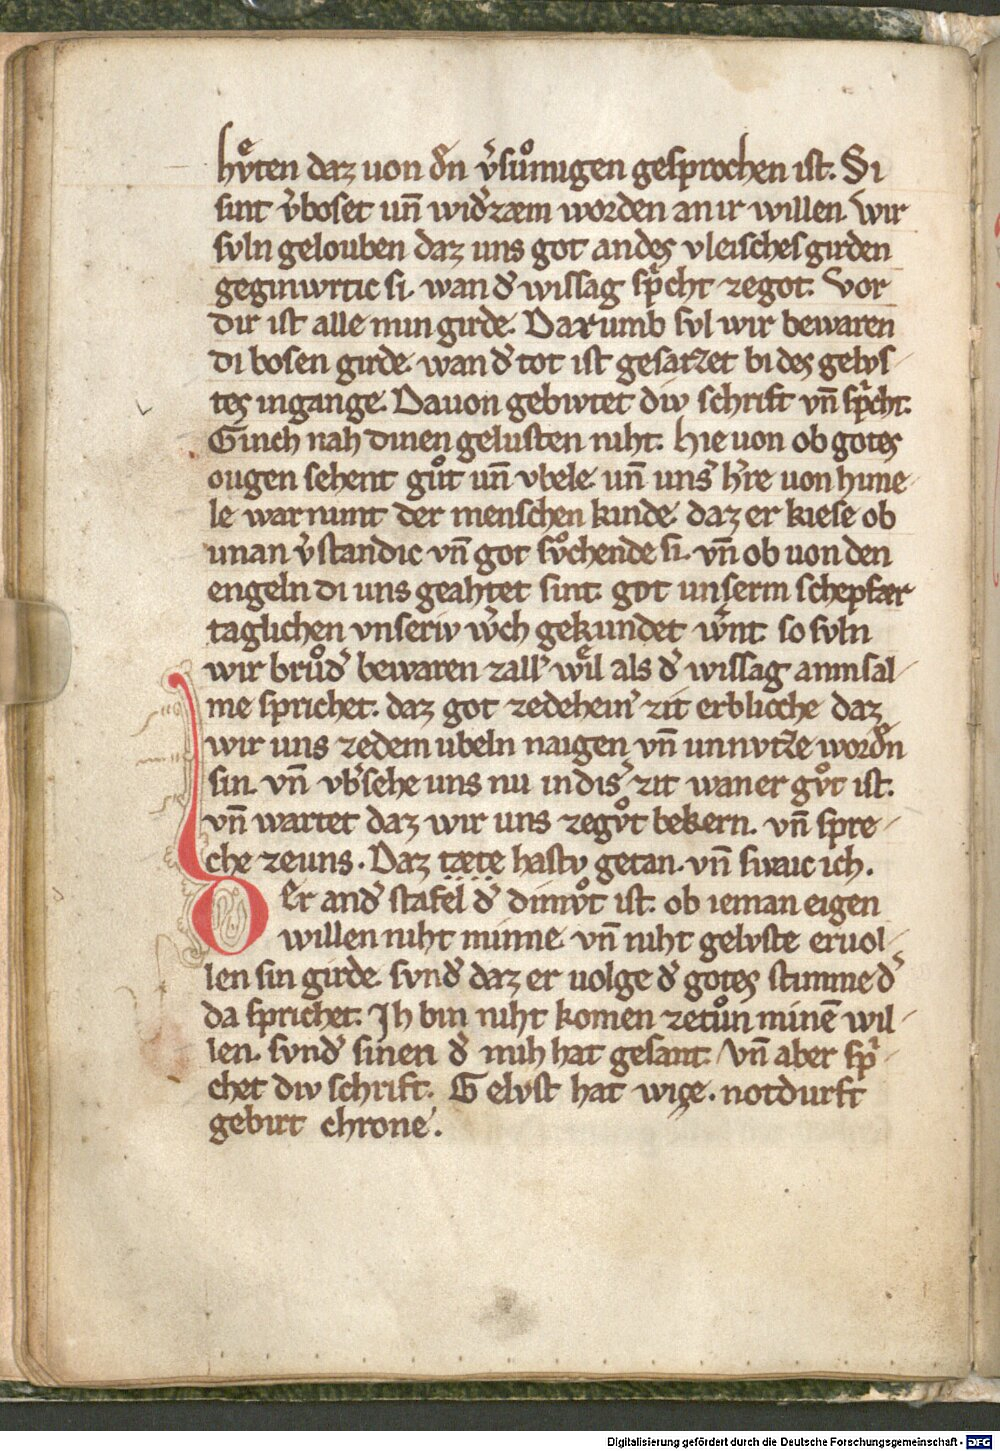 hvͤten daz uon dˀn vˀsuͦmigen gesprochen ist. Si
sint vˀboset un̄ widˀzæm worden an ir willen. Wir
svln gelouben daz uns got an des vleisches girden
geginwrtic si. wan dˀ wissag sp̾cht zegot. Vor
dir ist alle min girde. Darumb svl wir bewaren
di bosen girde. wan dˀ tot ist gesatzet bi des gelvs⸗
tes ingange. Dauon gebivtet div schrift vn̄ sp̾cht.
Ginch nah dinen gelusten niht. Hie uon ob gotes
ougen sehent guͦt un̄ vbele. un̄ unsˀ hˀre uon hime⸗
le war nimt der menschen kinde. daz er kiese ob
iman vˀstandic vn̄ got svͦchende si. vn̄ ob uon den
engeln di uns geahtet sint. got unserm schepfær
taglichen vnseriv wˀch gekundet wˀnt. so svln
wir bruͦdˀ bewaren zallˀ wͤil als dˀ wissag an im sal⸗
me sprichet. daz got zedeheinˀ zit erblicche daz
wir uns zedem ubeln naigen vn̄ unnvtze wordˀn
sin. vn̄ vbˀsehe uns nu in disˀ zit wan er gvͦt ist.
vn̄ wartet daz wir uns zegvͦt bekern. vn̄ spre⸗
che ze uns. Daz tæte hastv getan. vn̄ swaic ich.
Der andˀ stafel dˀ dimvͦt ist. ob ieman eigen
willen niht minne. vn̄ niht gelvste eruol⸗
len sin girde. svndˀ daz er uolge dˀ gotes stimme dˀ
da sprichet. Ih bin niht komen zetuͦn minē wil⸗
len. svndˀ sinen dˀ mih hat gesant. Vn̄ aber sp̾⸗
chet div schrift. Gelvst hat wize. notdurft
gebirt chrone.
Digitalisierung gefördert durch die Deutsche Forschungsgemeinschaft - DFG